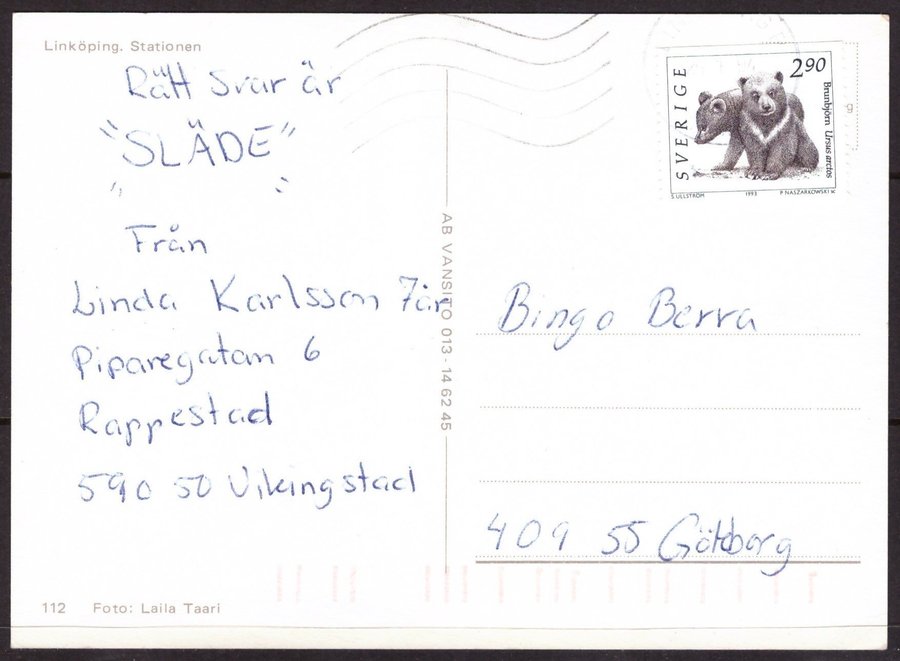 Linköping. Stationen
Rätt svar är
"SLÄDE"
Från
Linda Karlsson 7år
Piparegatan 6
Rappestad
590 50 Vikingstad
112 Foto: Laila Taari
AB VANSITO 013-14 62 45
SVERIGE
2 90
Brunbjörn Ursus arctos
S. ULLSTRÖM 1993 P. NASZARKOWSKI SC
g
Bingo Berra
409 55 Göteborg